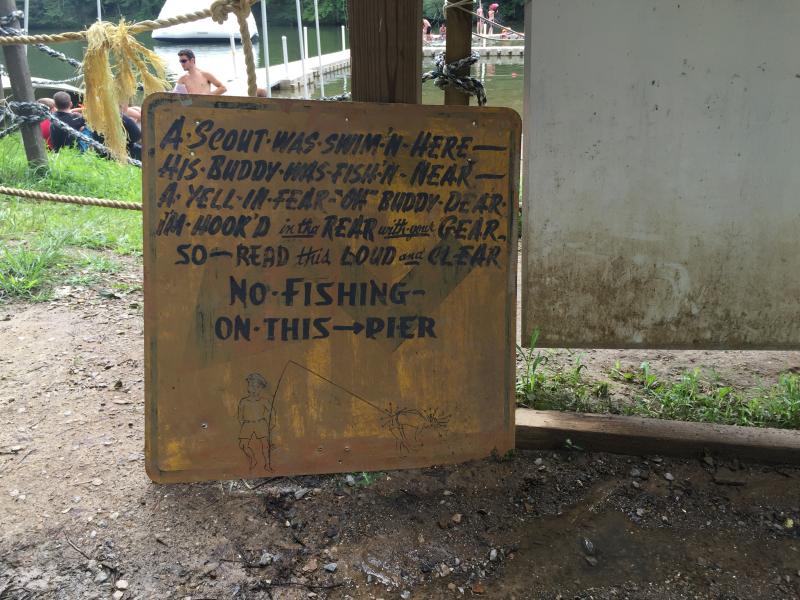 A·SCOUT·WAS·SWIM'N·HERE—
HIS·BUDDY·WAS·FISH'N·NEAR—
A·YELL·IN·FEAR-"OH" BUDDY·DEAR·
I'M·HOOK'D in the REAR with your GEAR-
SO—READ this LOUD and CLEAR
NO·FISHING-
ON·THIS→PIER